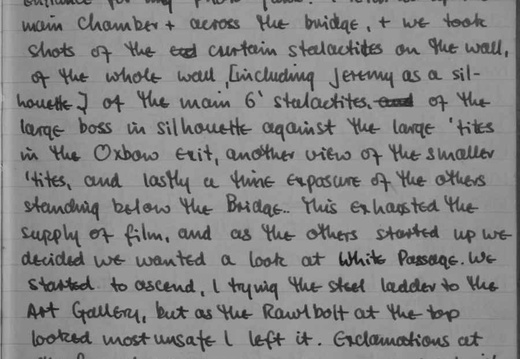 main chamber + across the bridge, + we took
shots of the curtain stalactites on the wall,
of the whole wall, [including Jeremy as a sil-
houette] of the main 6' stalactites, of the
large boss in silhouette against the large 'tites
in the Oxbow Exit, another view of the smaller
'tites, and lastly a time exposure of the others
standing below the Bridge.. This exhausted the
supply of film, and as the others started up we
decided we wanted a look at White Passage. We
started to ascend, I trying the steel ladder to the
Art Gallery, but as the Rawlbolt at the top
looked most unsafe I left it. Exclamations at